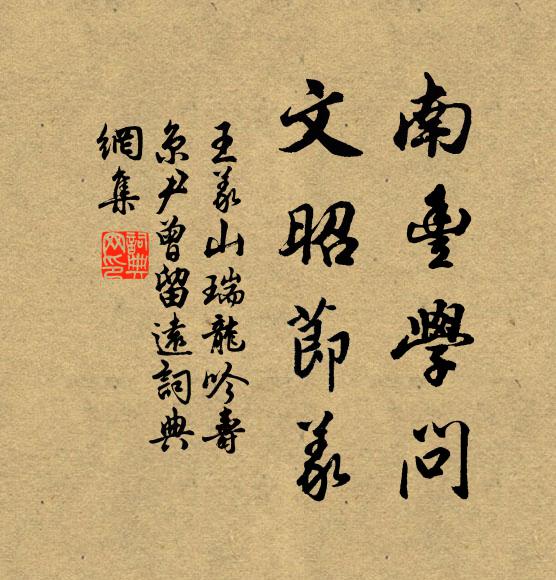 南豐學問
文昭節義
王義山瑞龍吟壽
京尹曾留遠詞典
網集
詞典
网印